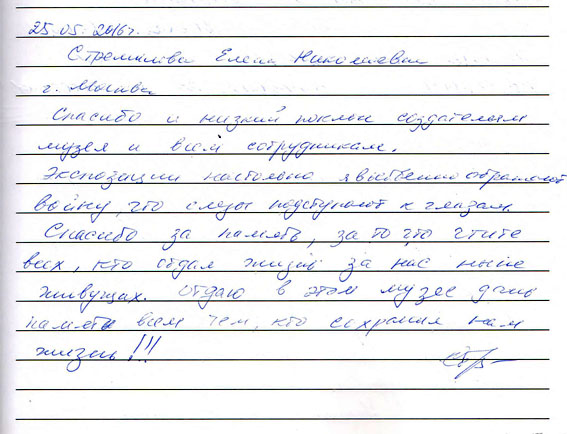 25.05.2016г.
Стремилова Елена Николаевна
г. Москва
Спасибо и низкий поклон создателям
музея и всем сотрудникам.
Экспозиции настолько явственно отражают
войну, что слезы подступают к глазам.
Спасибо за память, за то, что чтите
всех, кто отдал жизнь за нас ныне
живущих. Отдаю в этом музее дань
памяти всем тем, кто сохранил нам
жизнь!!!